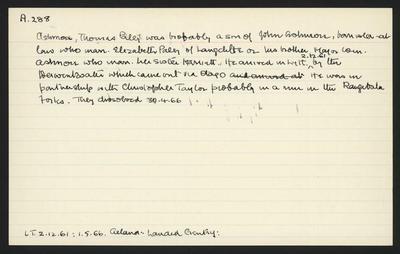 A.288
Ashmore, Thomas Paley was probably a son of John Ashmore, barrister-at
law who marr. Elizabeth Paley of Langcliffe or his brother Major Wm.
Ashmore who marr. her sister Harriett. He arrived in Lytt. 2.12.61 by the
Boats which came out via Otago and arrived at He was in
partnership with Christopher Taylor probably in a run in the Rangitata
Forks. They dissolved 30.4.66
L.T. 2.12.61 : 1.5.66. Acland - Landed Gentry :